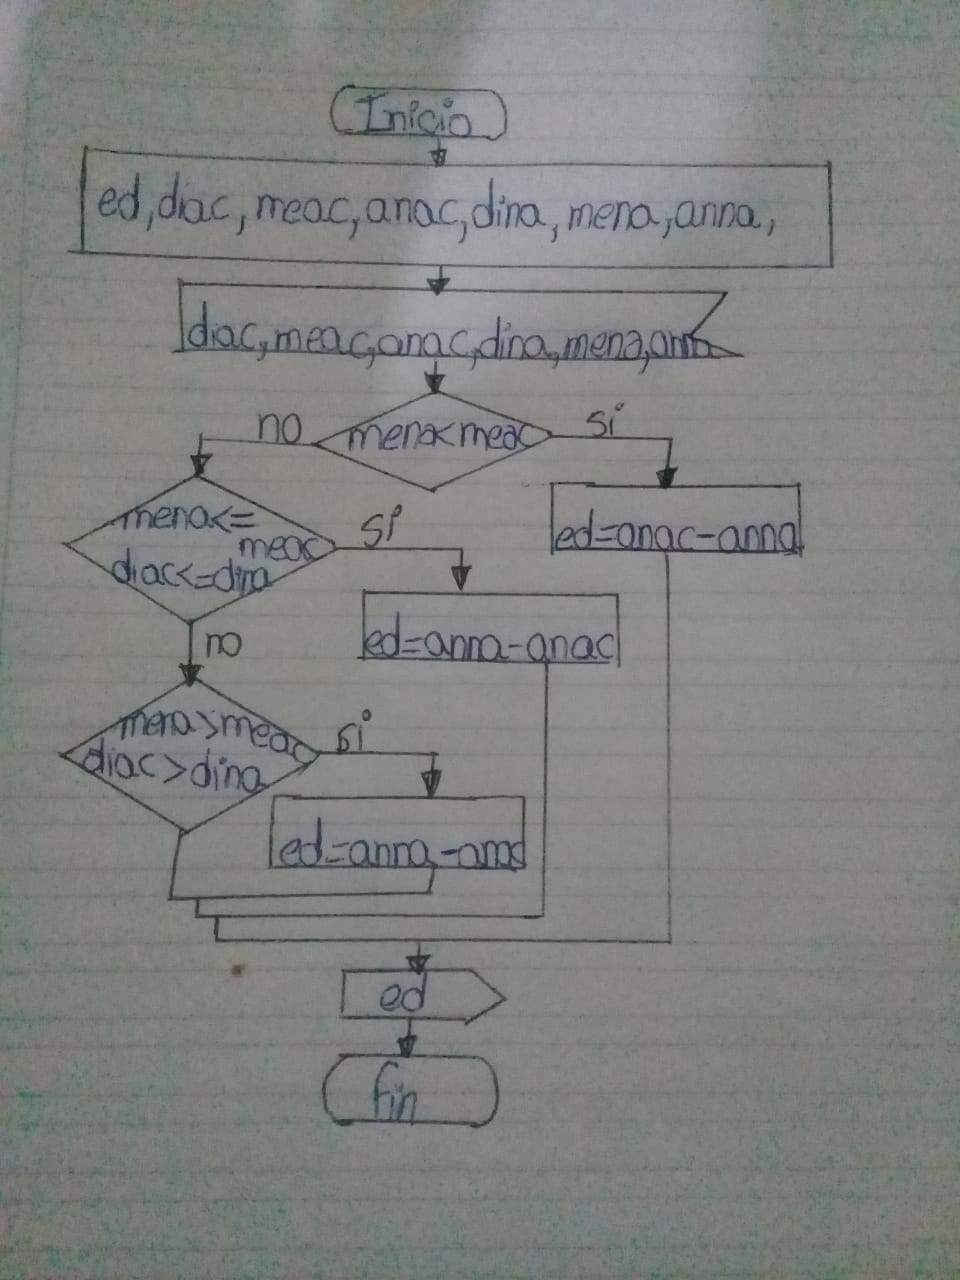 Inicio
ed, diac, meac, anac, dina, mena, anna,
diac, meac, anac, dina, mena, anna
mena<meac
no
si
mena<=
meac
diac<=dina
si
ed=anac-anna
no
ed=anna-anac
mena>meac
diac>dina
si
ed=anna-anac
ed
fin